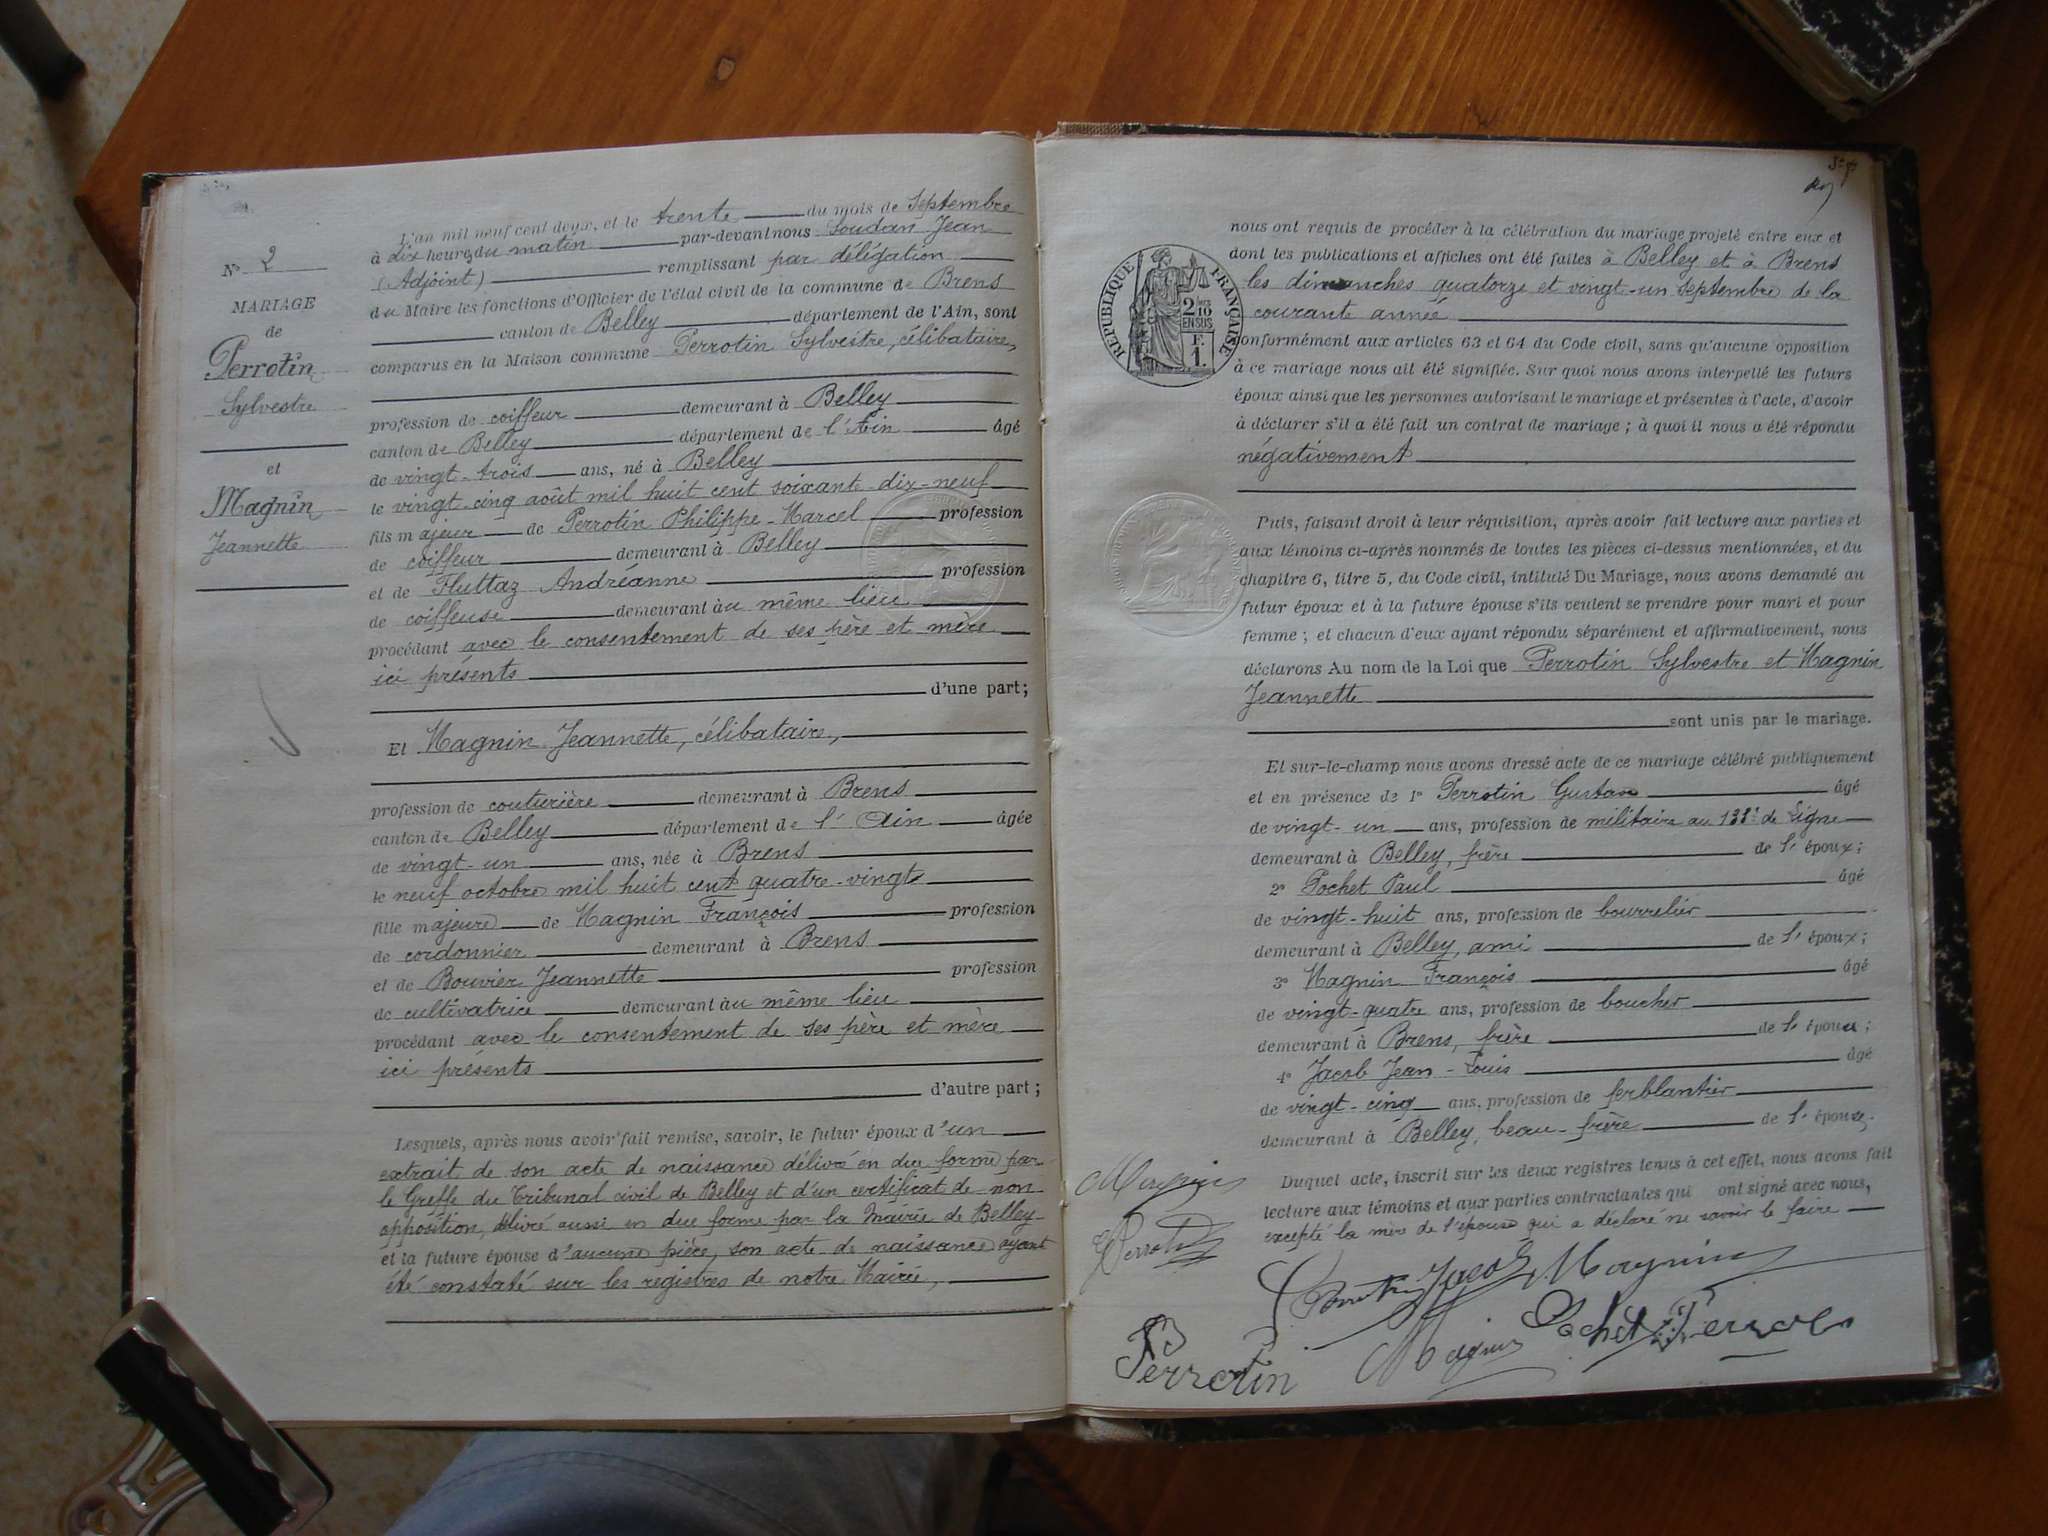 N° 2
MARIAGE
de
Perrotin
Sylvestre
et
Magnin
Jeannette
L'an mil neuf cent deux, et le trente du mois de Septembre
à dix heures du matin par-devant nous Soudan Jean
(Adjoint) remplissant par délégation
du Maire les fonctions d'Officier de l'état civil de la commune de Brens
canton de Belley département de l'Ain, sont
comparus en la Maison commune Perrotin Sylvestre, célibataire,
profession de coiffeur demeurant à Belley
canton de Belley département de l'Ain âgé
de vingt-trois ans, né à Belley
le vingt-cinq août mil huit cent soixante-dix-neuf
fils majeur de Perrotin Philippe-Marcel profession
de coiffeur demeurant à Belley
et de Fluttaz Andréanne profession
de coiffeuse demeurant au même lieu
procédant avec le consentement de ses père et mère
ici présents
d'une part;
Et Magnin Jeannette, célibataire,
profession de couturière demeurant à Brens
canton de Belley département de l'Ain âgée
de vingt-un ans, née à Brens
le neuf octobre mil huit cent quatre-vingt
fille majeure de Magnin François profession
de cordonnier demeurant à Brens
et de Bouvier Jeannette profession
de cultivatrice demeurant au même lieu
procédant avec le consentement de ses père et mère
ici présents
d'autre part;
Lesquels, après nous avoir fait remise, savoir, le futur époux d'un
extrait de son acte de naissance délivré en due forme par
le Greffe du Tribunal civil de Belley et d'un certificat de non
opposition, délivré aussi en due forme par la Mairie de Belley
et la future épouse d'aucune pièce, son acte de naissance ayant
été constaté sur les registres de notre Mairie,
nous ont requis de procéder à la célébration du mariage projeté entre eux et
dont les publications et affiches ont été faites à Belley et à Brens
les dimanches quatorze et vingt-un septembre de la
courante année
conformément aux articles 63 et 64 du Code civil, sans qu'aucune opposition
à ce mariage nous ait été signifiée. Sur quoi nous avons interpellé les futurs
époux ainsi que les personnes autorisant le mariage et présentes à l'acte, d'avoir
à déclarer s'il a été fait un contrat de mariage; à quoi il nous a été répondu
négativement
RÉPUBLIQUE FRANÇAISE
2/10
EN SUS
F.
1
Puis, faisant droit à leur réquisition, après avoir fait lecture aux parties et
aux témoins ci-après nommés de toutes les pièces ci-dessus mentionnées, et du
chapitre 6, titre 5, du Code civil, intitulé Du Mariage, nous avons demandé au
futur époux et à la future épouse s'ils veulent se prendre pour mari et pour
femme; et chacun d'eux ayant répondu séparément et affirmativement, nous
déclarons Au nom de la Loi que Perrotin Sylvestre et Magnin
Jeannette
sont unis par le mariage.
Et sur-le-champ nous avons dressé acte de ce mariage célébré publiquement
et en présence de 1° Perrotin Gustave âgé
de vingt-un ans, profession de militaire au 133e de Ligne
demeurant à Belley, frère de l'époux;
2° Pochet Paul âgé
de vingt-huit ans, profession de bourrelier
demeurant à Belley, ami de l'époux;
3° Magnin François âgé
de vingt-quatre ans, profession de boucher
demeurant à Brens, frère de l'épouse;
4° Jacob Jean-Louis âgé
de vingt-cinq ans, profession de ferblantier
demeurant à Belley, beau-frère de l'épouse.
Duquel acte, inscrit sur les deux registres tenus à cet effet, nous avons fait
lecture aux témoins et aux parties contractantes qui ont signé avec nous,
excepté la mère de l'épouse qui a déclaré ne savoir le faire
Magnin
Perrotin
Jacob Magnin
Magnin Pochet Perrotin
Perrotin